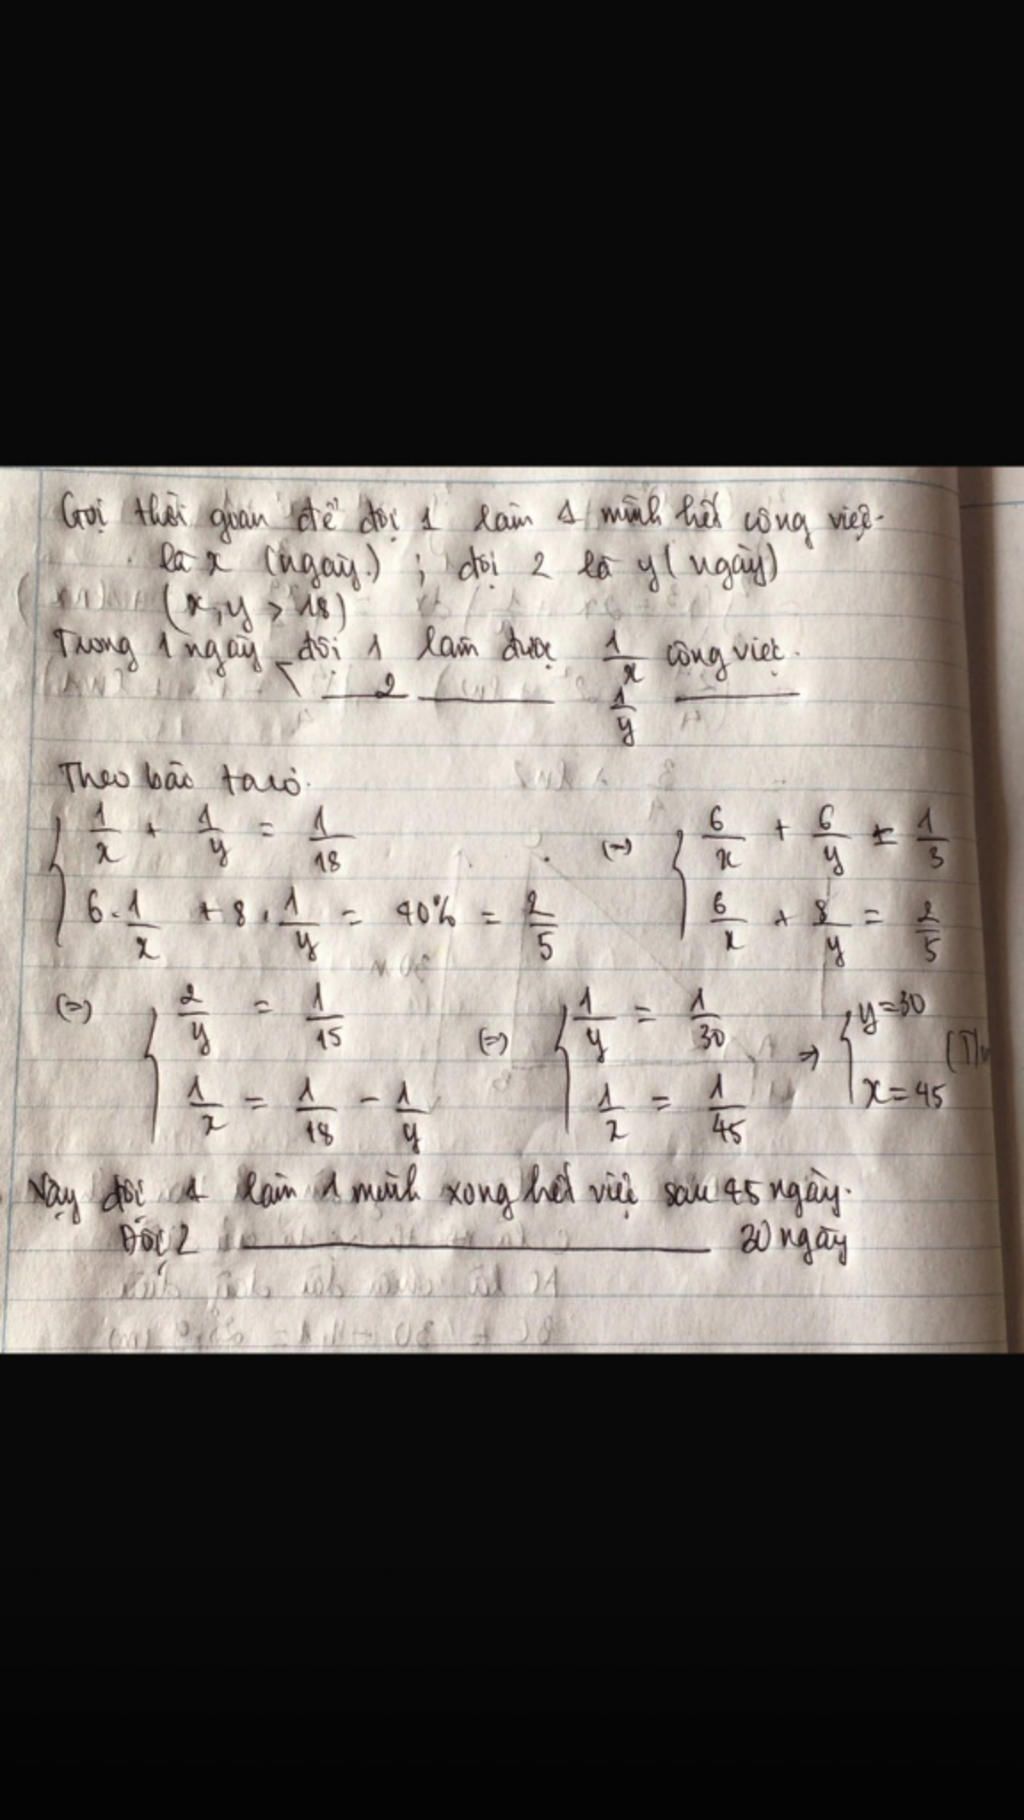 Gọi thời gian để đội 1 làm 1 mình hết công việc.
là x (ngày.) ; đội 2 là y (ngày)
(x, y > 18)
Trong 1 ngày đội 1 làm được 1/x công việc.
2 1/y
Theo bài ta có.
{ 1/x + 1/y = 1/18 (=) { 6/x + 6/y = 1/3
6 . 1/x + 8 . 1/y = 40% = 2/5 6/x + 8/y = 2/5
(=) { 2/y = 1/15 (=) { 1/y = 1/30 => { y = 30
1/x = 1/18 - 1/y 1/x = 1/45 x = 45
Vậy đội 1 làm 1 mình xong hết việc sau 45 ngày.
Đội 2 30 ngày